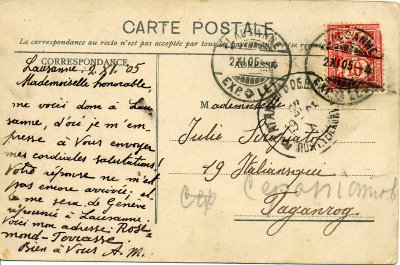 CARTE POSTALE
La correspondance au recto n'est pas acceptée par tous les
CORRESPONDANCE
Lausanne. 2. XI. 05
Mademoiselle honorable,
me voici donc à Lau-
sanne, d'où je m'em-
presse à Vous envoyer
mes cordiales salutations!
Votre réponse ne m'est
pas encore arrivée; et
la me sera de Genève
à Lausanne.
Voici mon adresse: Rose-
mond-Terrasse.
Bien à Vous A. M.
LAUSANNE
2.XI.05
EXP. LET.
LAUSANNE
2.XI.05
EXP. LET.
Mademoiselle
Julie
19 Italianskya
Taganrog